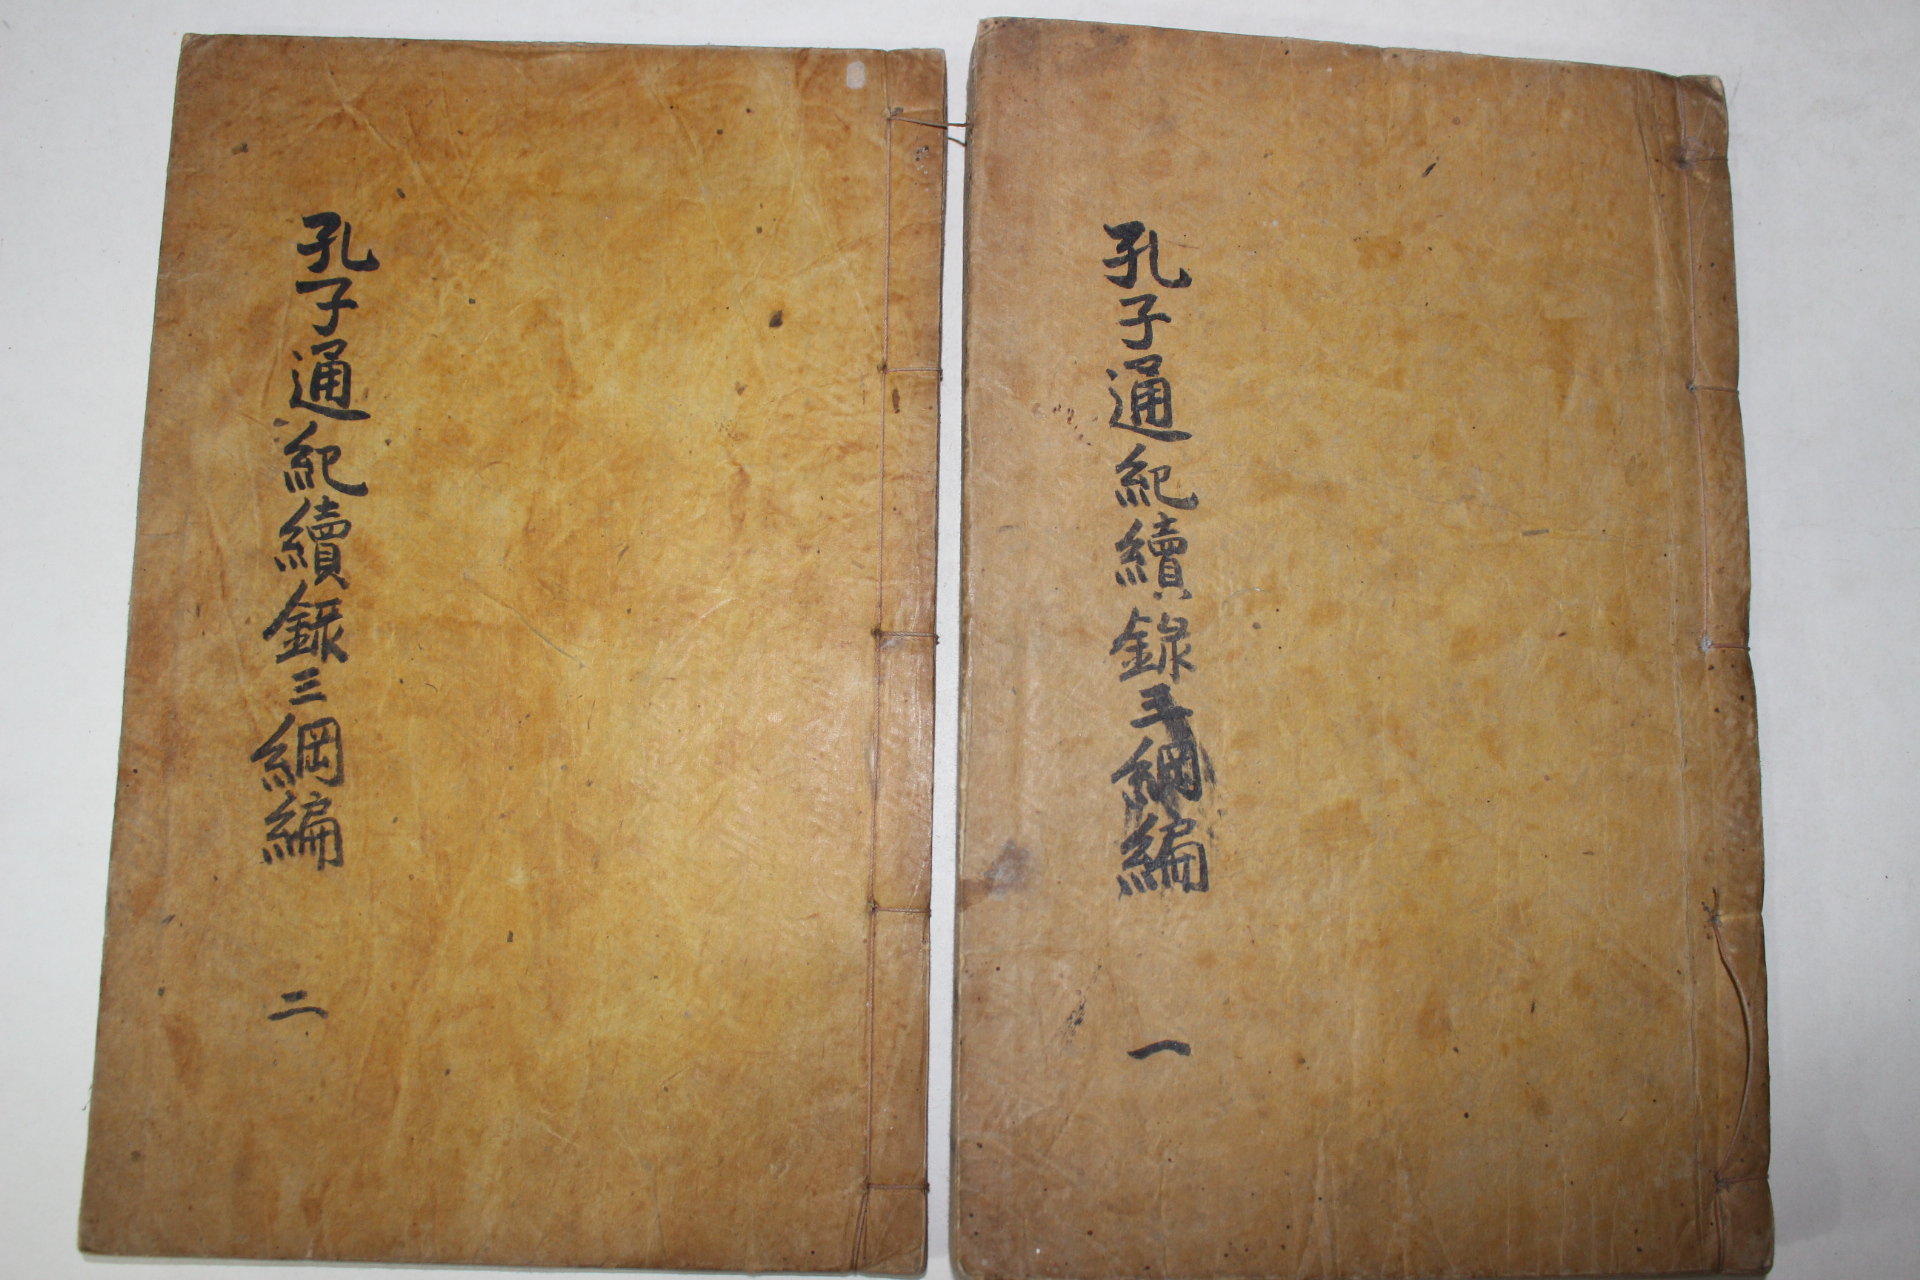 孔子通紀續錄三綱編 一
孔子通紀續錄三綱編 二